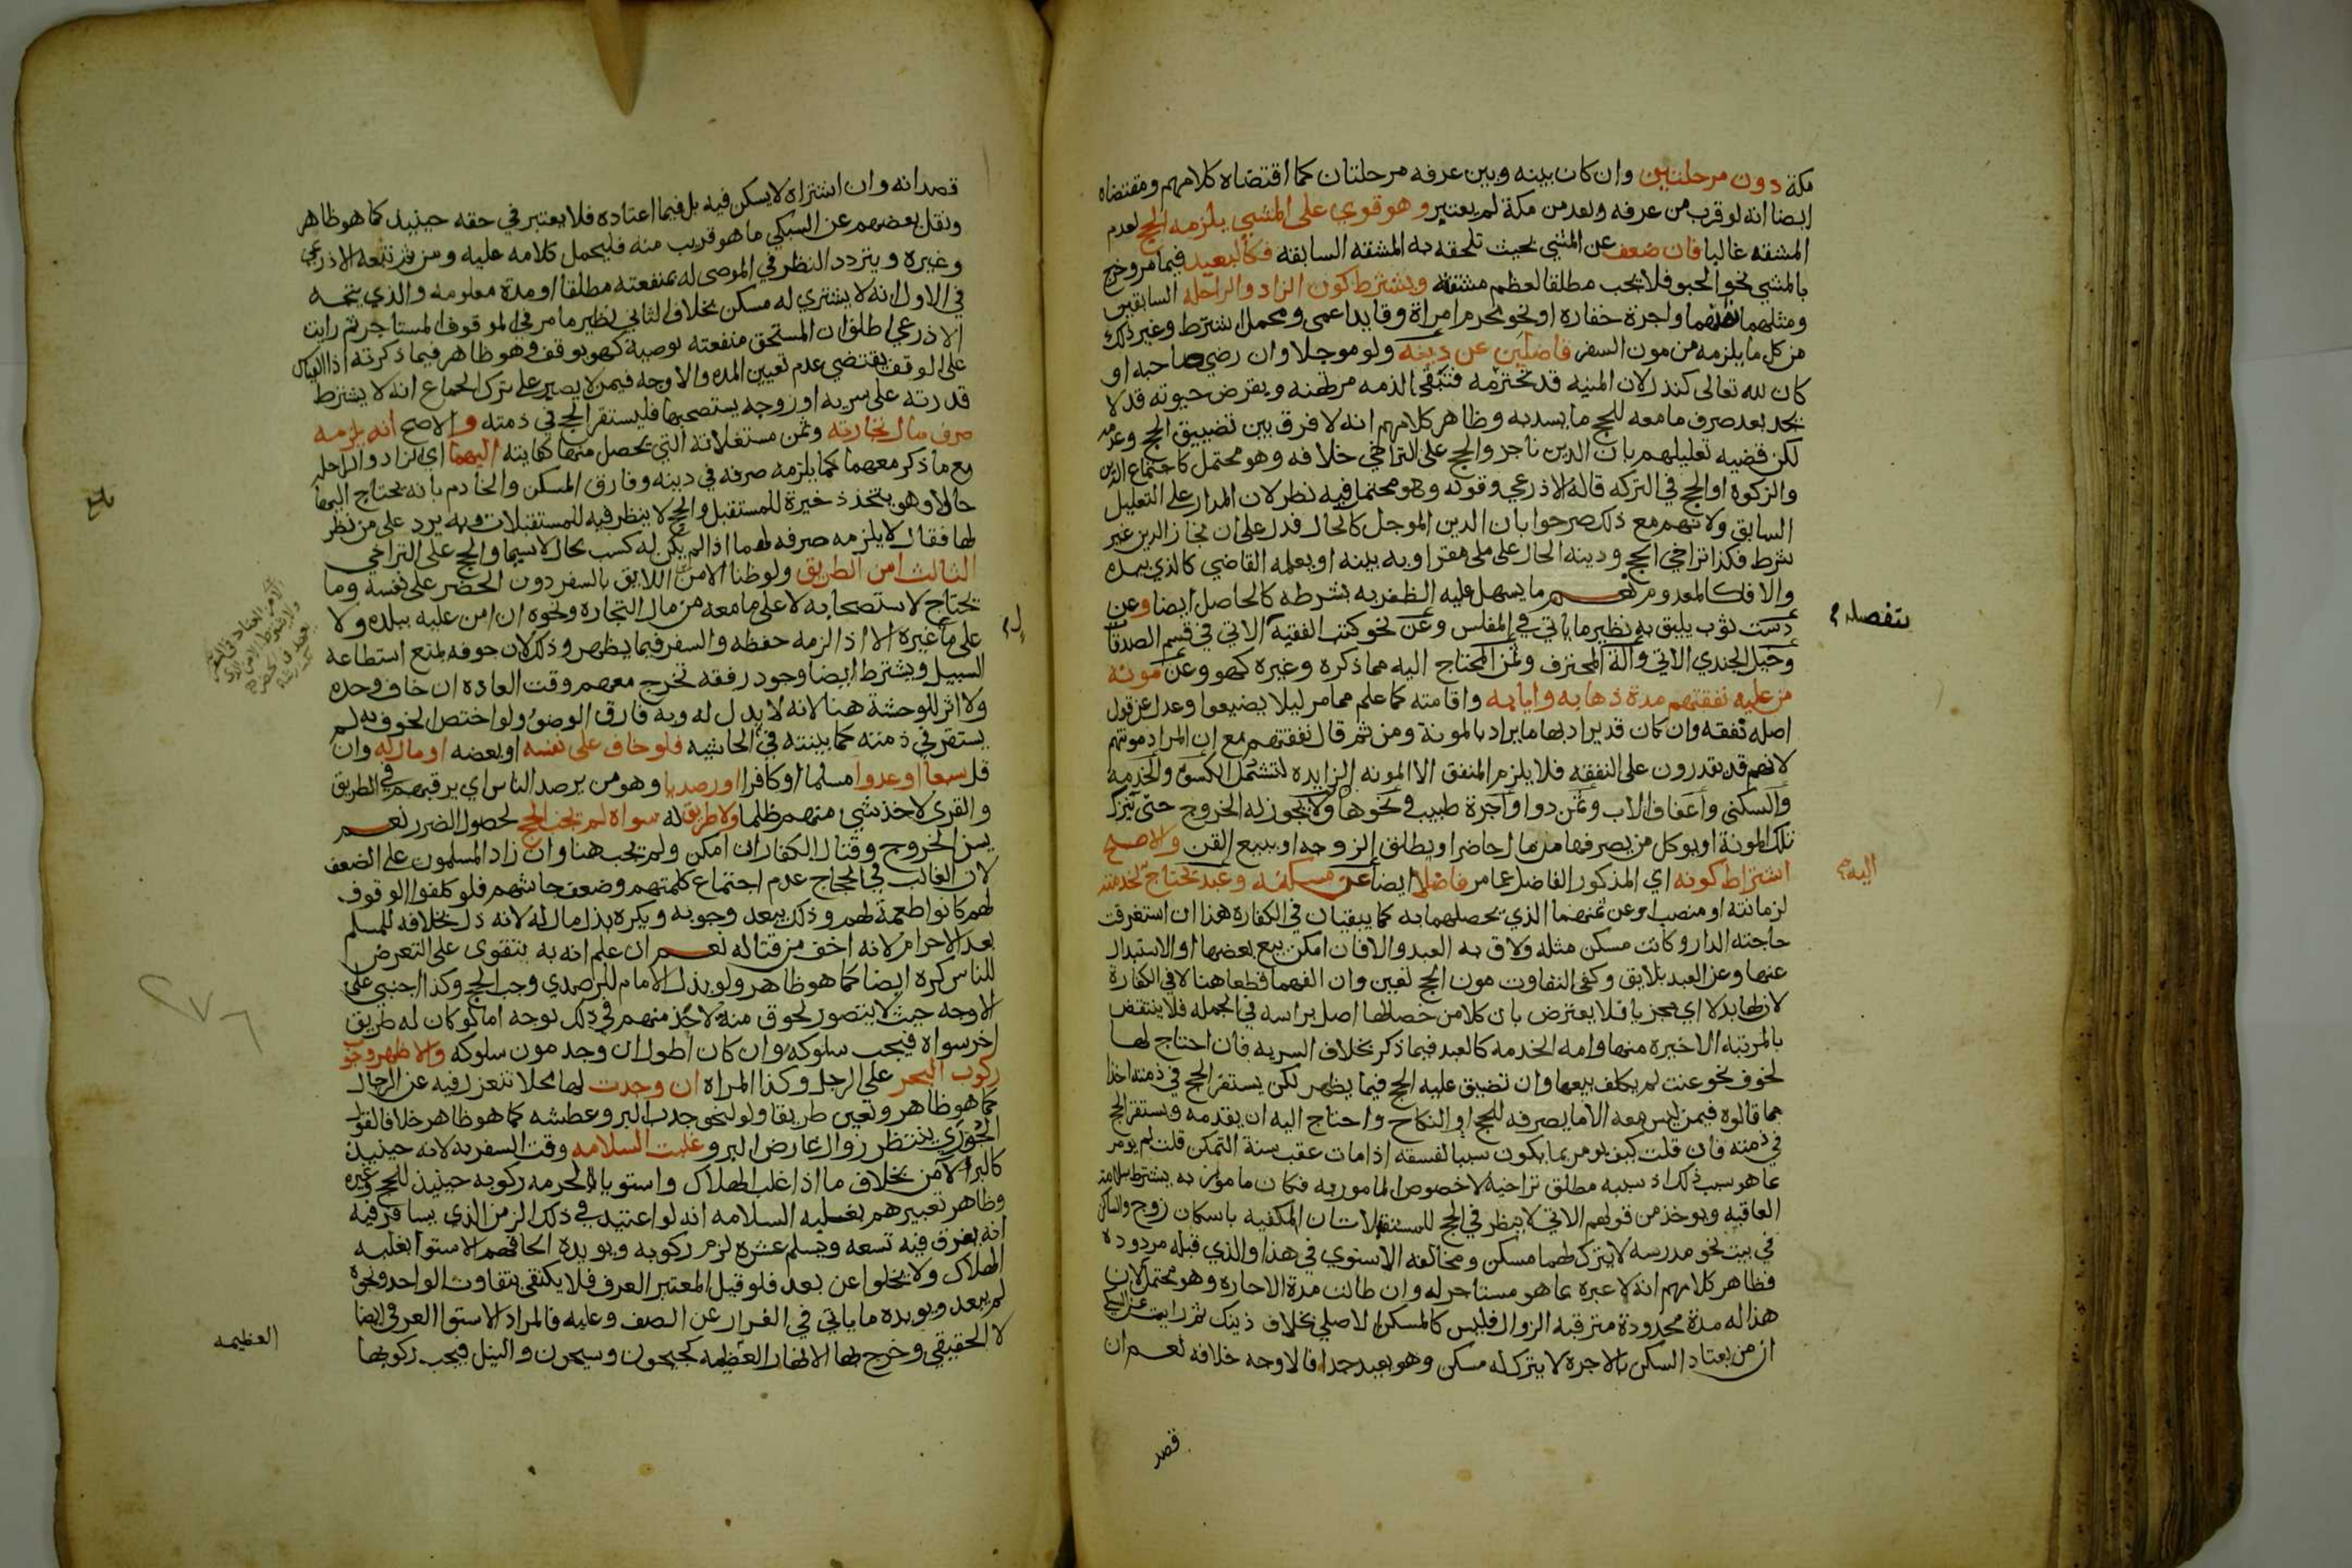 مكة دون مرحلتين وان كان بينه وبين عرفه مرحلتان كما اقتضاه كلامهم ومقتضاه
ايضا انه لو قرب من عرفه وبعد من مكة لم يعتبر وهو قوي على المشي يلزمه الحج لعدم
المشقه غالبا فان ضعف عن المشي بحيث تلحقه به المشقه السابقه فكالبعيد فيما مر وخرج
بالمشي نحو الحبو فلا يجب مطلقا لعظم مشقته ويشترط كون الزاد والراحله السابقين
ومثلهما ثمنهما واجرة خفاره او نحو محرم امراة وقايد اعمى ومحمل اشترط وغير ذلك
من كل ما يلزمه من مون السفر فاضلين عن دينه ولو موجلا وان رضي صاحبه او
كان لله تعالى كنذر لان المنيه قد تخترمه فتبقى الذمه مرتهنه وبفرض حيوته قد لا
يجد بعد صرف ما معه للحج ما يسد به وظاهر كلامهم انه لا فرق بين تضييق الحج وعدمه
لكن قضيه تعليلهم بان الدين ناجز والحج على التراخي خلافه وهو محتمل كاجتماع الدين
والزكوة او الحج في التركه قاله الاذرعي وقوله وهو محتمل فيه نظر لان المدار على التعليل
السابق ولانهم مع ذلك صرحوا بان الدين الموجل كالحال فدل على ان نجاز الدين غير
شرط فكذا تراخي الحج ودينه الحال على ملي مقر او به بينه او يعلمه القاضي كالذي بيده
والا فكالمعدوم نعم ما يسهل عليه الظفر به بشرطه كالحاصل ايضا وعن
دست ثوب يليق به نظير ما ياتي في المفلس وعن نحو كتب الفقيه الاتي في قسم الصدقات
وخيل الجندي الاتي وآلة المحترف وثمن المحتاج اليه مما ذكره وغيره كهو وعن مونه
من عليه نفقتهم مدة ذهابه وايابه واقامته كما علم مما مر ليلا يضيعوا وعدل عن قول
اصله نفقه وان كان قد يراد بها ما يراد بالمونة ومن ثم قال نفقتهم مع ان المراد مونتهم
لانهم قد يقدرون على النفقه فلا يلزم المنفق الا المونه الزايده لتشمل الكسوة والخدمه
والسكنى واعفاف الاب وثمن دوا واجرة طبيب في نحوها ولا يجوز له الخروج حتى يترك
تلك المونة او يوكل من يصرفها من مال حاضر او يطلق الزوجه او يبيع القن والاصح
اشتراط كونه اي المذكور الفاضل عما مر فاضلا ايضا عن مسكنه وعبد يحتاج لخدمته
لزمانته او منصب وعن ثمنهما الذي يحصلهما به كما يبقيان في الكفاره هذا ان استغرقت
حاجته الدار وكانت مسكن مثله ولاق به العبد والا فان امكن بيع بعضها او الاستبدال
عنها وعن العبد بلايق وكفى التفاوت مون الحج تعين وان الفهما قطعا هنا لا في الكفارة
لان لها بدلا اي مجزيا فلا يعترض بان كلا من خصالها اصل براسه في الجمله فلا ينتقض
بالمرتبه الاخيره منها وامه الخدمه كالعبد فيما ذكر بخلاف السريه فان احتاج لها
لخوف نحو عنت لم يكلف بيعها وان تضيق عليه الحج فيما يظهر لكن يستقر الحج في ذمته اخذا
مما قالوه فيمن ليس معه الا ما يصرفه للحج او النكاح واحتاج اليه ان يقدمه ويستقر الحج
في ذمته فان قلت كيف يومر بما يكون سببا لفسقه اذا مات عقب سنة التمكن قلت لم يومر
بما هو سبب ذلك اذ سببه مطلق تراخيه لا خصوص المامور به فكان ما مومر به بشترط سلامة
العاقبه ويوخذ من قولهم الاتي لا ينظر في الحج للمستقبلات ان المكفيه باسكان زوج والساكن
في بيت نحو مدرسه لا يترك لهما مسكن ومخالفه الاسنوي في هذا والذي قبله مردودة
فظاهر كلامهم انه لا عبره بما هو مستاجر له وان طالت مدة الاجاره وهو محتمل لان
هذا له مدة محدودة مترقبه الزوال فليس كالمسكن الاصلي بخلاف ذينك ثم رايت عن السبكي
ان من يعتاد السكن بالاجرة لا يترك له مسكن وهو بعيد جدا فالاوجه خلافه نعم ان
قصد
بتفصيله
اليه
قصد انه وان اشتراه لا يسكن فيه بل فيما اعتاده فلا يعتبر في حقه حينيذ كما هو ظاهر
ونقل بعضهم عن السبكي ما هو قريب منه فليحمل كلامه عليه ومن ثم تبعه الاذرعي
وغيره ويتردد النظر في الموصى له بمنفعته مطلقا او مدة معلومه والذي يتجه
في الاول انه لا يشتري له مسكن بخلاف الثاني نظير ما مر في الموقوف المستاجر ثم رايت
الاذرعي اطلق ان المستحق منفعته بوصية كهو بوقف وهو ظاهر فيما ذكرته اذ القياس
على الوقف يقتضي عدم تعيين المده والاوجه فيمن لا يصبر على ترك الجماع انه لا يشترط
قدرته على سريه او زوجه يستصحبها فليستقر الحج في ذمته والاصح انه يلزمه
صرف مال تجارته وثمن مستغلاته التي يحصل منها كفايته اليهما اي الزاد والراحله
مع ما ذكر معهما كما يلزمه صرفه في دينه وفارق المسكن والخادم بانه يحتاج اليهما
حالا وهو يتخذ ذخيرة للمستقبل والحج لا ينظر فيه للمستقبلات وبه يرد على من نظر
لها فقال لا يلزمه صرفه لهما اذا لم يكن له كسب بحال لا سيما والحج على التراخي
الثالث امن الطريق ولو ظنا الامن اللايق بالسفر دون الحضر على نفسه وما
يحتاج لاستصحابه لا على ما معه من مال التجاره ونحوه ان امن عليه ببلده ولا
على ما غيره الا اذا لزمه حفظه والسفر فيما يظهر وذلك لان خوفه يمنع استطاعة
السبيل ويشترط ايضا وجود رفقه تخرج معهم وقت العاده ان خاف وحده
ولا اثر للوحشة هنا لانه لا بدل له وبه فارق الوضو ولو اختص الخوف به لم
يستقر في ذمته كما بينته في الحاشيه فلو خاف على نفسه او بعضه او ماله وان
قل سبعا او عدوا مسلما او كافرا او رصديا وهو من يرصد الناس اي يرقبهم في الطريق
والقرى لاخذ شي منهم ظلما ولا طريق له سواه لم يجب الحج لحصول الضرر نعم
يسن الخروج وقتال الكفار ان امكن ولم يجب هنا وان زاد المسلمون على الضعف
لان الغالب في الحجاج عدم اجتماع كلمتهم وضعف جاشهم فلو كلفوا الوقوف
لهم كانوا طعمة لهم وذلك يبعد وجوبه ويكره بذل مال له لانه ذل بخلافه للمسلم
بعد الاحرام لانه اخف من قتاله نعم ان علم انه به يتقوى على التعرض
للناس كره ايضا كما هو ظاهر ولو بذل الامام للرصدي وجب الحج وكذا اجنبي على
الاوجه حيث لا يتصور لحوق منة لاحد منهم في ذلك بوجه اما لو كان له طريق
اخر سواه فيجب سلوكه وان كان اطول ان وجد مون سلوكه والاظهر وجوب
ركوب البحر على الرجل وكذا المراه ان وجدت لها محلا تنعزل فيه عن الرجال
كما هو ظاهر وتعين طريقا ولو لنحو جدب البر وعطشه كما هو ظاهر خلافا لقول
الجوري ينتظر زوال عارض البر وغلبت السلامه وقت السفر به لانه حينيذ
كالبر الآمن بخلاف ما اذا غلب الهلاك واستويا لحرمه ركوبه حينيذ للحج وغيره
وظاهر تعبيرهم بغلبه السلامه انه لو اعتيد في ذلك الزمن الذي يسافر فيه
انه يغرق فيه تسعه ويسلم عشره لزم ركوبه ويويده الحاقهم الاستوا بغلبه
الهلاك ولا يخلوا عن بعد فلو قيل المعتبر العرف فلا يكتفى بتفاوت الواحد ونحوه
لم يبعد ويويده ما ياتي في الفرار عن الصف وعليه فالمراد الاستوا العرفي ايضا
لا الحقيقي وخرج بها الانهار العظيمه كجيحون وسيحون والنيل فيجب ركوبها
العظيمه
بلغ